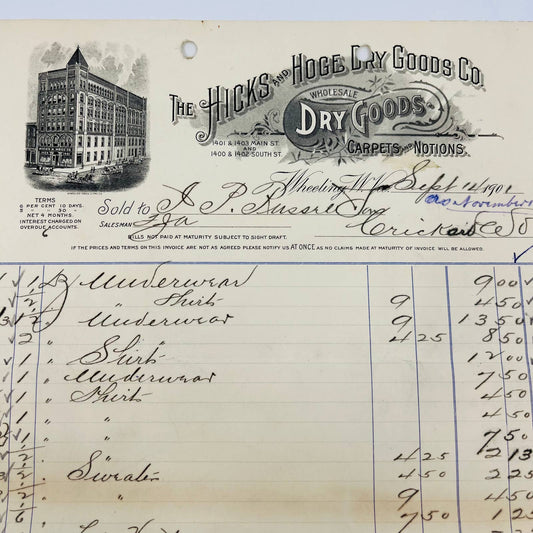 THE HICKS AND HOGE DRY GOODS CO.
WHOLESALE
DRY GOODS.
1401 & 1403 MAIN ST.
AND
1400 & 1402 SOUTH ST.
CARPETS AND NOTIONS.
Wheeling, W. Va. Sept 12 1901
TERMS
6 PER CENT 10 DAYS.
5 " " 30 "
NET 4 MONTHS.
INTEREST CHARGED ON
OVERDUE ACCOUNTS.
as November 1
Sold to
SALESMAN
BILLS NOT PAID AT MATURITY SUBJECT TO SIGHT DRAFT.
IF THE PRICES AND TERMS ON THIS INVOICE ARE NOT AS AGREED PLEASE NOTIFY US AT ONCE AS NO CLAIMS MADE AT MATURITY OF INVOICE WILL BE ALLOWED.
1 Underwear 9 00
" Shirts 9 4 50
Underwear 9 13 50
2 " 4 25 8 50
1 Shirts 12 00
1 Underwear 7 50
1 Shirts 4 50
1 " 4 50
1 " 7 50
" 4 25 2 13
Sweater 4 50 2 25
" 9 4 50
" 7 50 1 25